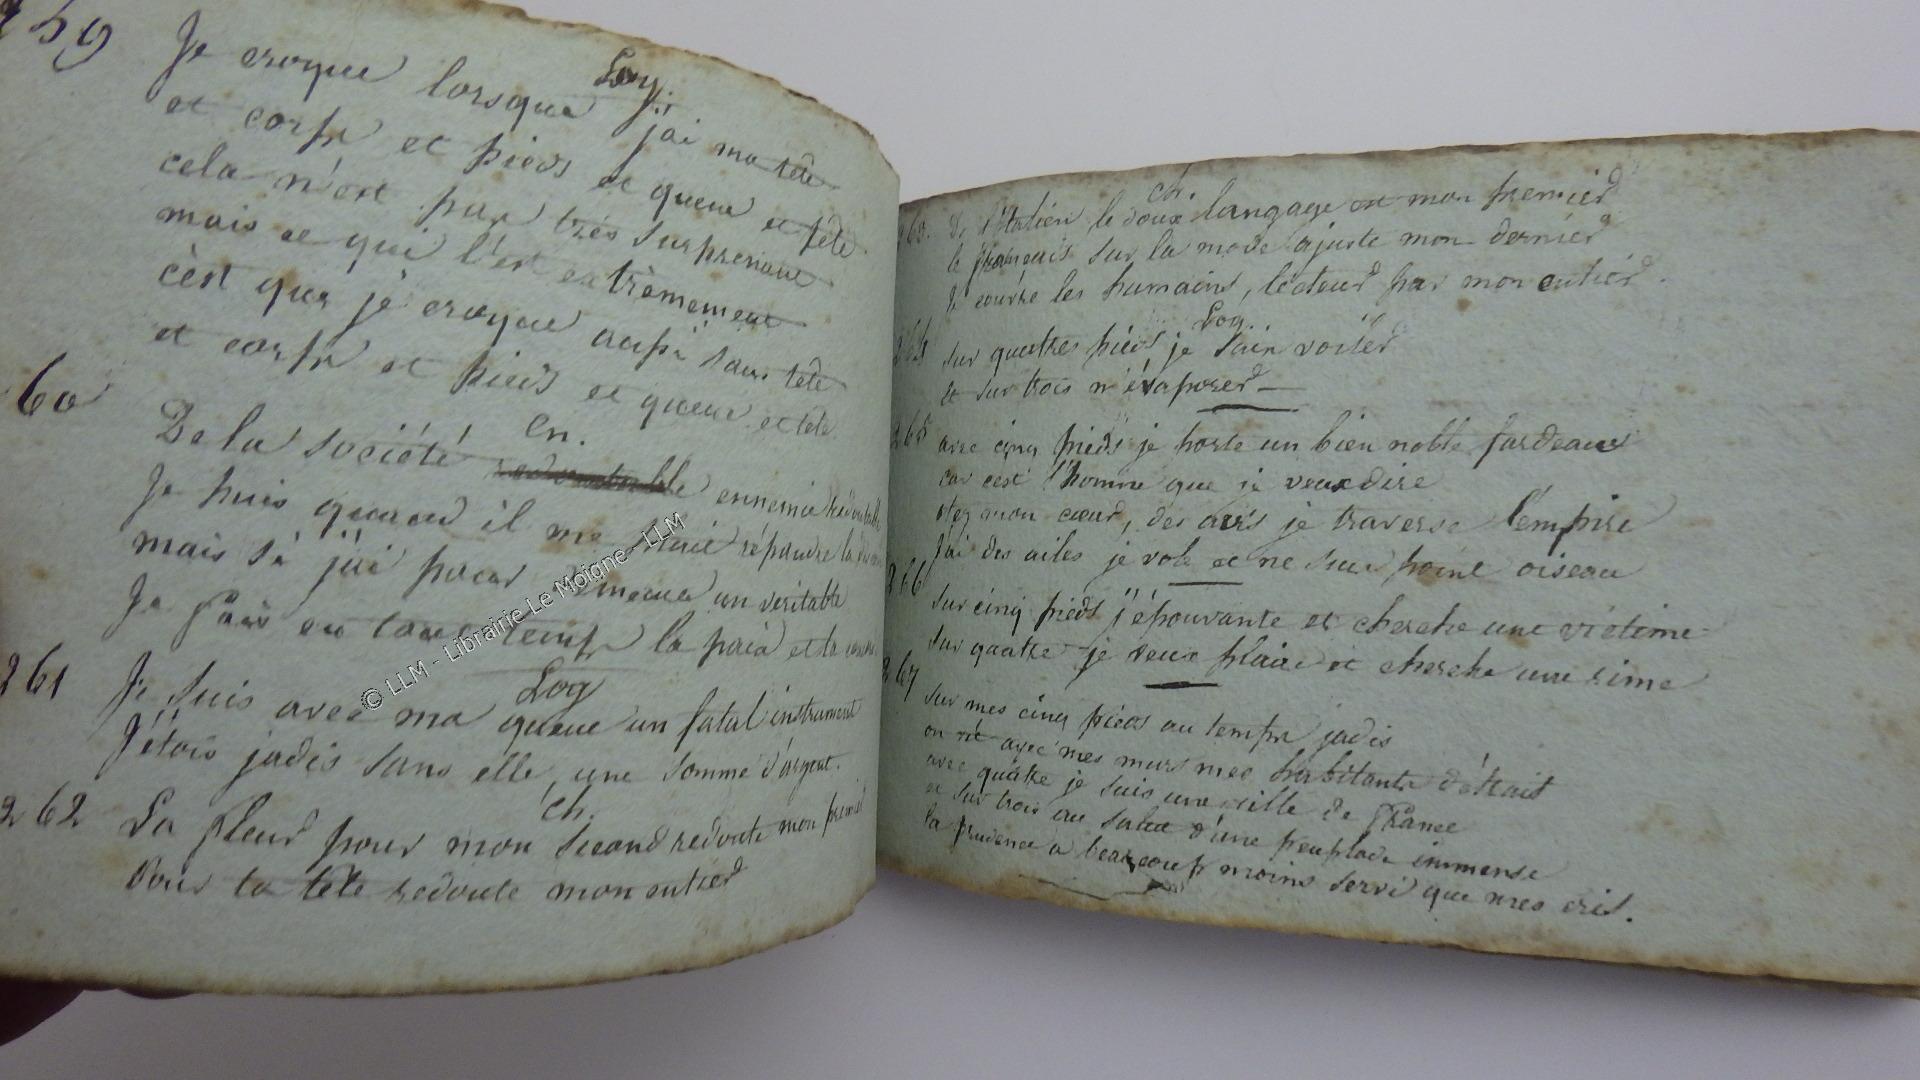 259
Log.
Je croque lorsque j'ai ma tête
et corps et pieds et queue et tête
cela n'est pas très surprenant
mais ce qui l'est extrêmement
c'est que je croque aussi sans tête
et corps et pieds et queue et tête
60
En.
De la société ennemie redoutable
Je puis quand il me plait répandre la
mais si j'ai pour un veritable
Je fais en tout temps la paix et la
261
Log
Je suis avec ma queue un fatal instrument
J'étois jadis sans elle, une somme d'argent.
262
Ch.
La fleur pour mon second redoute mon premier
Pour ta tête redoute mon entier
ch.
263. De l'Italien le doux langage est mon premier
le français sur la mode ajuste mon dernier
Je couvre les humains, lecteur par mon entier.
Log.
264 sur quatres pieds je sais voiler
et sur trois m'évaporer
265 avec cinq pieds je porte un bien noble fardeaux
car c'est l'homme que je veux dire
otez mon cœur, des airs je traverse l'empire
J'ai des ailes je vole et ne suis point oiseau
266 sur cinq pieds j'épouvante et cherche une victime
sur quatre je veux plaire et cherche une rime
267 sur mes cinq pieds au temps jadis
on vit avec mes murs mes habitants détruit
avec quatre je suis une ville de France
et sur trois au salut d'une peuplade immense
la prudence a beaucoup moins servi que mes cris.
© LLM - Librairie Le Moigne - LLM